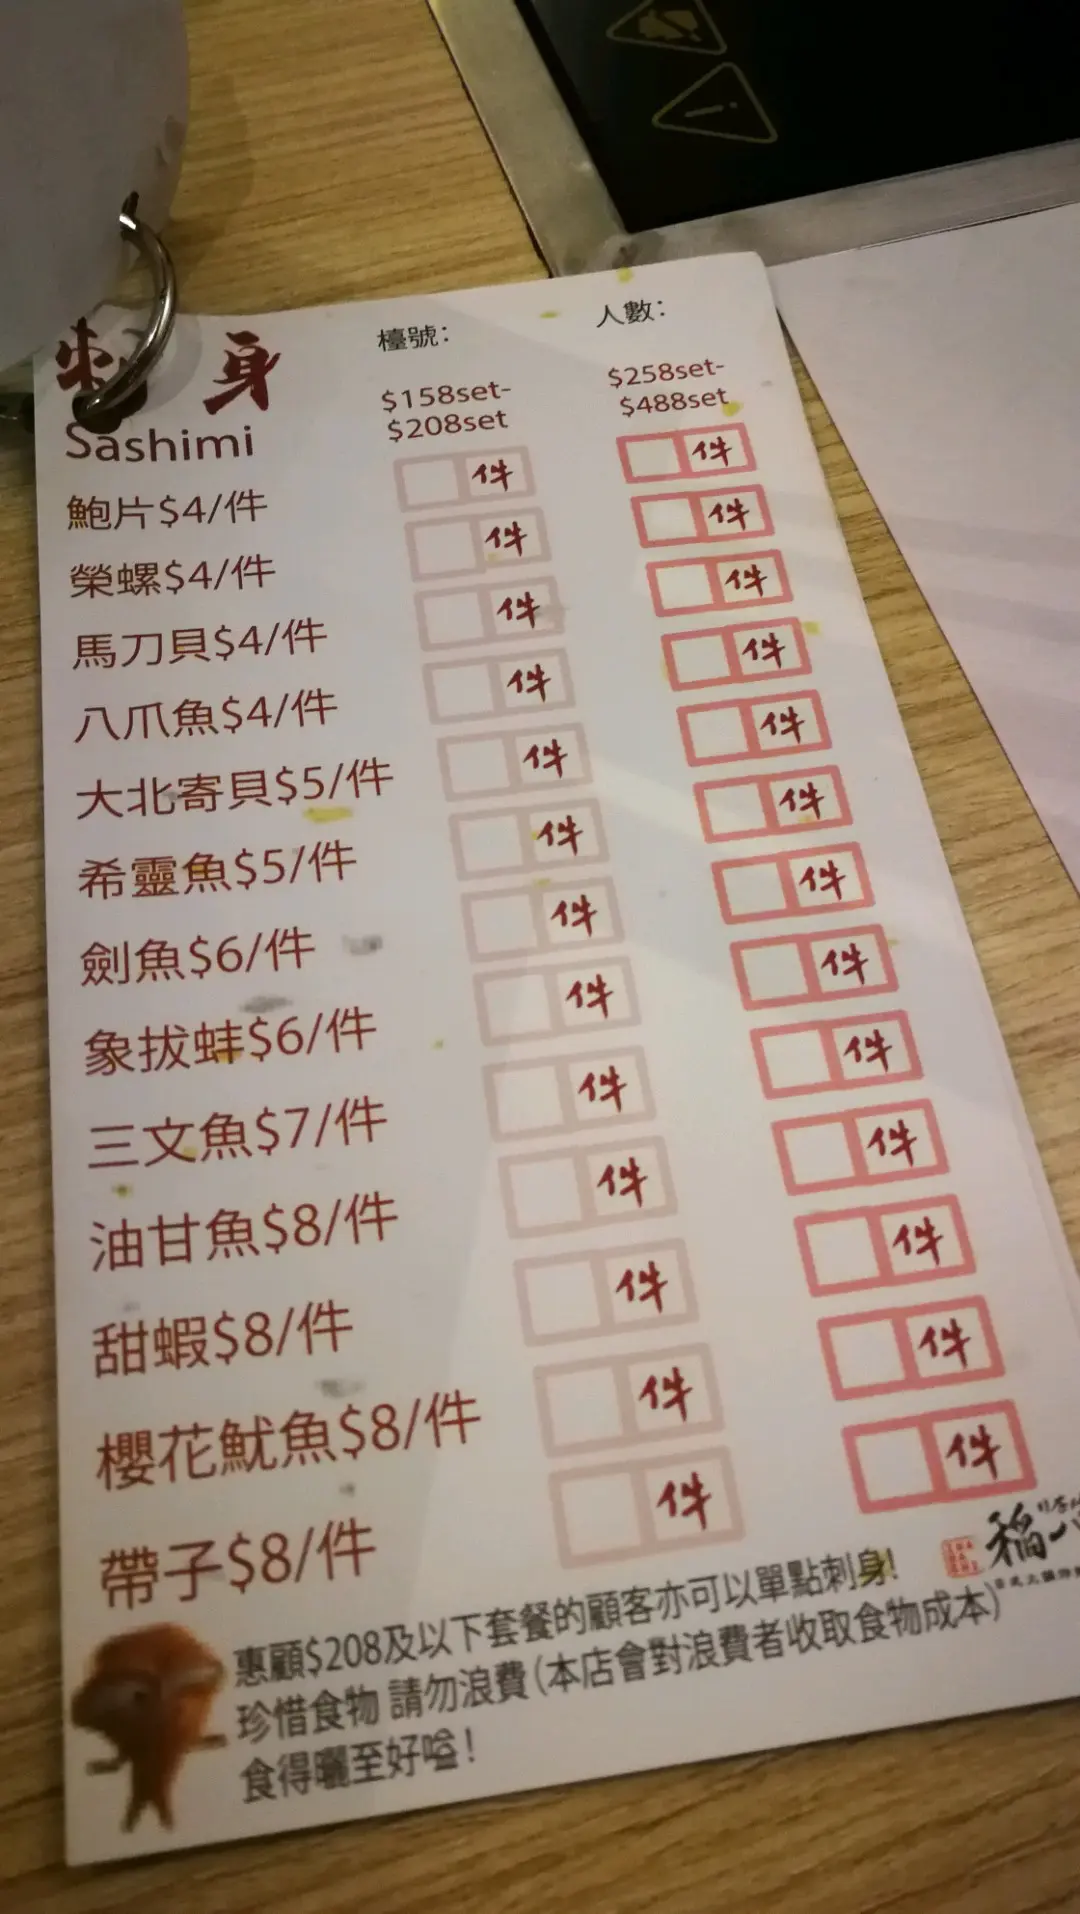 刺身
檯號：
人數：
Sashimi
$158set-
$208set
$258set-
$488set
件
件
鮑片$4/件
件
件
榮螺$4/件
件
件
馬刀貝$4/件
件
件
八爪魚$4/件
件
件
大北寄貝$5/件
件
件
希靈魚$5/件
件
件
劍魚$6/件
件
件
象拔蚌$6/件
件
件
三文魚$7/件
件
件
油甘魚$8/件
件
件
甜蝦$8/件
件
件
櫻花魷魚$8/件
件
件
帶子$8/件
件
件
稻
惠顧$208及以下套餐的顧客亦可以單點刺身!
珍惜食物 請勿浪費(本店會對浪費者收取食物成本)
食得曬至好嗌!